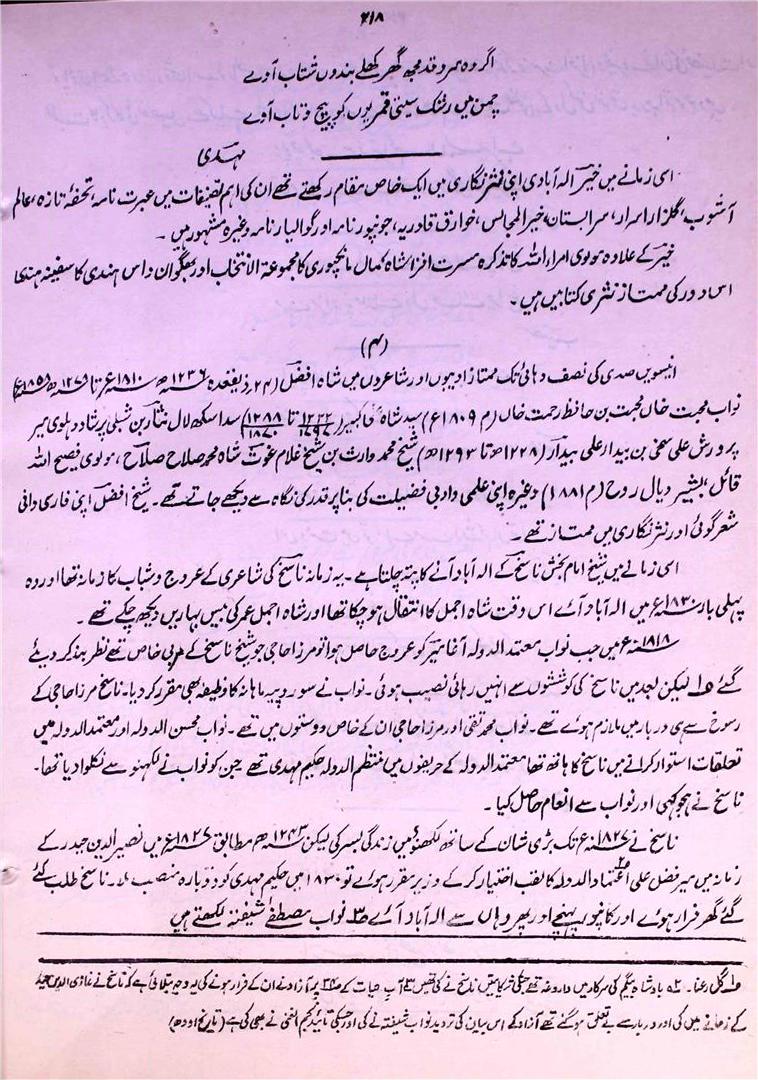 ۲۱۸
اگر وہ سرو قد مجھ گھر کھلے بندوں شتاب آوے
چمن میں رشک سیتی قمریوں کو پیچ و تاب آوے
مہدی
اسی زمانے میں خیرؔ الہ آبادی اپنی نثر نگاری میں ایک خاص مقام رکھتے تھے ان کی اہم تصنیفات میں عبرت نامہ، تحفۂ تازہ، عالم
آشوب، گلزار اسرار، سرابستان، خیر المجالس، خوارق قادریہ، جونپور نامہ اور گوالیار نامہ وغیرہ مشہور ہیں۔
خیرؔ کے علاوہ مولوی امراللہ کا تذکرہ مسرت افزا شاہ کمال مانکپوری کا مجموعۃ الانتخاب اور بھگوان داس ہندی کا سفینہ ہندی
اس دور کی ممتاز نثری کتابیں ہیں۔
(۴)
انیسویں صدی کی نصف دہائی تک ممتاز ادیبوں اور شاعروں میں شاہ افضل (۲۴ ذیقعدہ ۱۲۳۶ھ ۱۸۱۰ء تا ۱۲۷۵ھ ۱۸۵۸ء)
نواب محبت خاں محبت بن حافظ رحمت خاں (م ۱۸۰۹ء) سید شاہ کبیر (۱۲۲۲/۱۷۹۷ تا ۱۲۸۸/۱۸۷۰) سدا سکھ لال نثار بن شبلی پرشاد دہلوی میر
پرورش علی سخی بن بیدار علی بیدار (۱۲۲۸ھ تا ۱۲۹۳ھ) شیخ محمد وارث بن شیخ غلام غوث شاہ محمد صلاح صلاح، مولوی فصیح اللہ
قائل، بشیشر دیال روح (م ۱۸۸۱) وغیرہ اپنی علمی و ادبی فضیلت کی بنا پر قدر کی نگاہ سے دیکھے جاتے تھے۔ شیخ افضل اپنی فارسی دانی
شعر گوئی اور نثر نگاری میں ممتاز تھے۔
اسی زمانے میں شیخ امام بخش ناسخ کے الہ آباد آنے کا پتہ چلتا ہے۔ یہ زمانہ ناسخ کی شاعری کے عروج و شباب کا زمانہ تھا اور وہ
پہلی بار ۱۸۳۰ء میں الہ آباد آئے اس وقت شاہ اجمل کا انتقال ہو چکا تھا اور شاہ اجمل عمر کی بیس بہاریں دیکھ چکے تھے۔
۱۸۱۸ء میں جب نواب معتمد الدولہ آغا میر کو عروج حاصل ہوا تو مرزا حاجی جو شیخ ناسخ کے مربی خاص تھے نظر بند کر دیئے
گئے ۱؎ لیکن بعد میں ناسخ کی کوششوں سے انہیں رہائی نصیب ہوئی۔ نواب نے سو روپیہ ماہانہ کا وظیفہ بھی مقرر کر دیا۔ ناسخ مرزا حاجی کے
رسوخ سے ہی دربار میں ملازم ہوئے تھے۔ نواب محمد تقی اور مرزا حاجی ان کے خاص دوستوں میں تھے۔ نواب محسن الدولہ اور معتمد الدولہ میں
تعلقات استوار کرانے میں ناسخ کا ہاتھ تھا معتمد الدولہ کے حریفوں میں منتظم الدولہ حکیم مہدی تھے جن کو نواب نے لکھنؤ سے نکلوا دیا تھا۔
ناسخ نے ہجو کہی اور نواب سے انعام حاصل کیا۔
ناسخ نے ۱۸۲۷ء تک بڑی شان کے ساتھ لکھنؤ میں زندگی بسر کی لیکن ۱۲۴۳ھ مطابق ۱۸۲۷ء میں نصیر الدین حیدر کے
زمانہ میں میر فضل علی ۲؎ اعتماد الدولہ کا لقب اختیار کر کے وزیر مقرر ہوئے تو ۱۸۳۰ میں حکیم مہدی کو دوبارہ منصب ملا۔ ناسخ طلب کئے
گئے گھر فرار ہوئے اور کانپور پہنچے اور پھر وہاں سے الہ آباد آئے ۳؎ نواب مصطفےٰ شیفتہ لکھتے ہیں
۱؎ گل رعنا۔ ۲؎ بادشاہ بیگم کی سرکار میں داروغہ تھے جنکی شکایتیں ناسخ نے کی تھیں ۳؎ آب حیات کے پر آزاد نے ان کے فرار ہونے کی یہ وجہ بتلائی ہے کہ ناسخ نے غازی الدین حیدر
کے زمانے میں کی اور دربار سے بے تعلق ہو گئے تھے آزاد کے اس بیان کی تردید نواب شیفتہ نے کی اور جسکی تائید نجم الغنی نے بھی کی ہے (تاریخ اودھ)